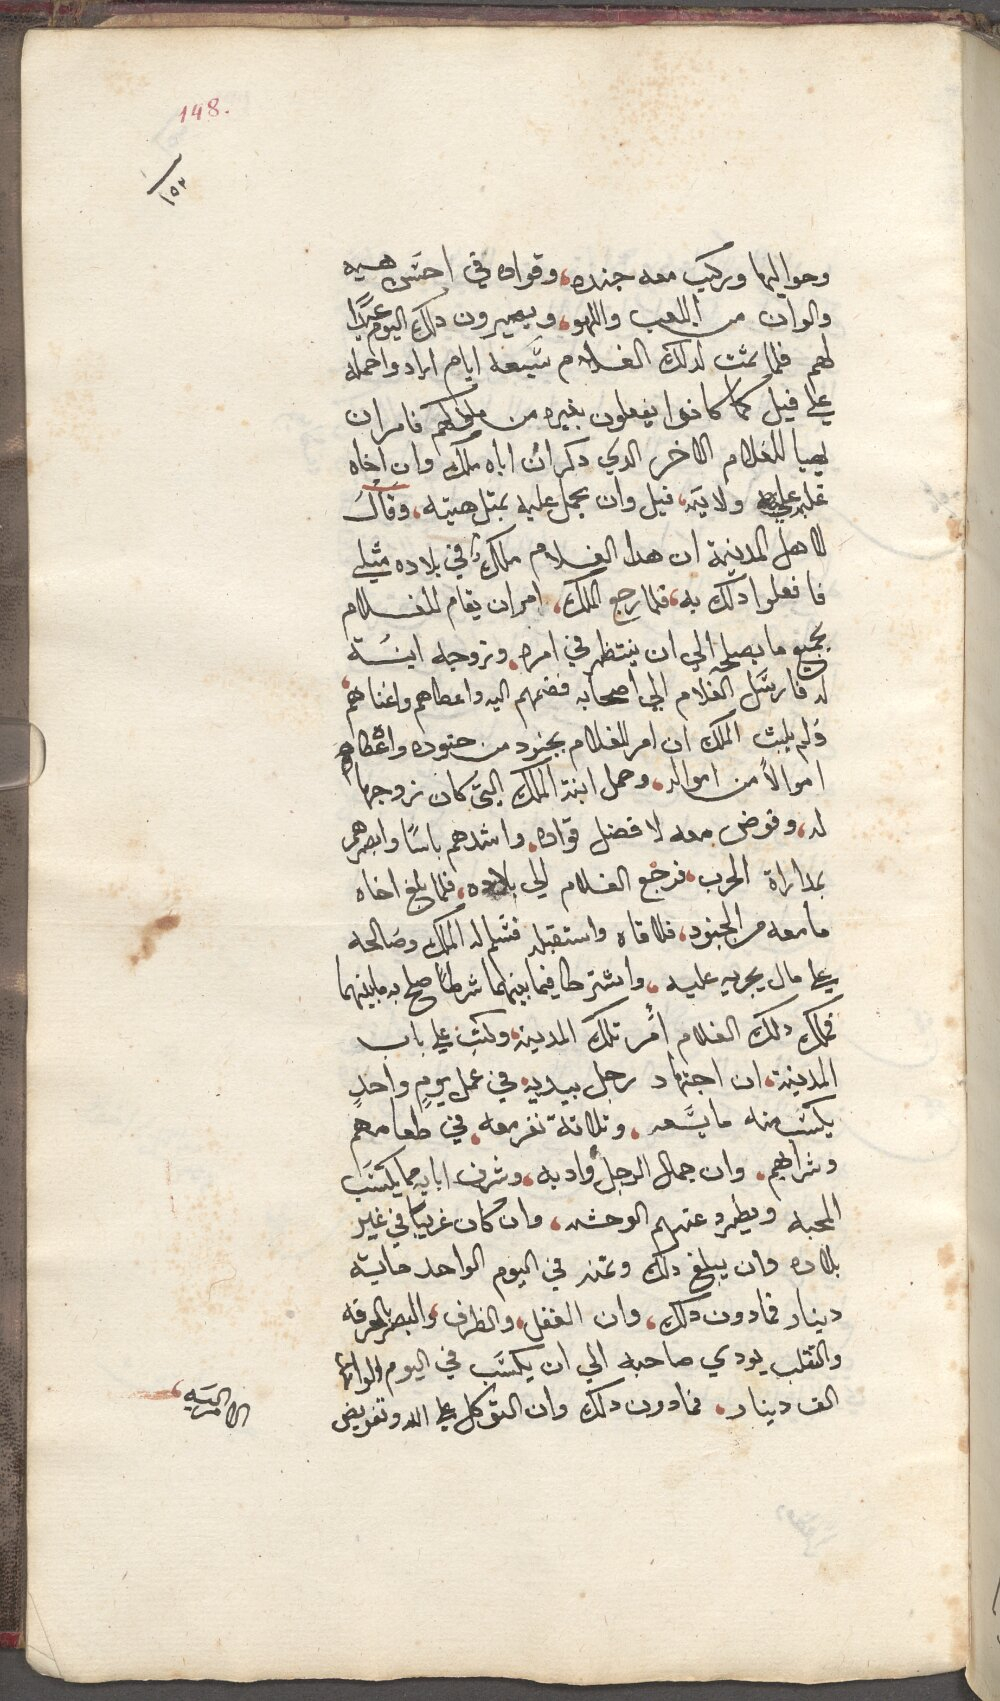 148.
١٥٢
وحواليها وركب معه جنده، وقواده في احسن هييه
والوان من اللعب واللهو، ويصيرون دلك اليوم عيدًا
لهم فلما تمت لدلك الغلام سبعه ايام اراد واحمله
علي فيل كما كانوا يفعلون بغيره من ملوكهم فامر ان
يهيا للغلام الاخر الدي دكر ان اباه ملك وان اخاه
غلبه علي ولايته، فيل وان يحمل عليه بمتل هيته، وقال
لاهل المدينة ان هدا الغلام ملك في بلاده مثلي
فافعلوا دلك به، فلما رجع الملك، امر ان يقام للغلام
بجميع ما يصلحه الي ان ينتظر في امره، وتزوجه ابنة
له فارسل الغلام الي اصحابه فضمهم اليه واعطاهم واغناهم
ولم يلبث الملك ان امر للغلام بجنود من جنوده واعطاه
اموالاً من امواله، وحمل ابنة الملك التي كان زوجها
له، وفوض معه لافضل قواده، واشدهم باسًا وابصرهم
بمداراة الحرب، فرجع الغلام الي بلاده، فلما بلغ اخاه
ما معه من الجنود، فلاقاه واستقبله فسلم له الملك وصالحه
علي مال يجريه عليه، واشترطا فيما بينهما شرطًا صلح به ما بينهما
فملك دلك الغلام امر تلك المدينه، وكتب علي باب
المدينة، ان اجتهاد رجل بيديه في عمل يومٍ واحدٍ
يكسب منه ما يسعه، وتلاتة نفر معه، في طعامهم
وشرابهم، وان جمال الرجل وادبه، وشرف ابايه مما يكسب
المحبه ويطرد عنهم الوحشه، وان كان غريبًا في غير
بلاده وان يبلغ دلك وتمنه في اليوم الواحد ماية
دينار فما دون دلك، وان العقل، والظرف، والبصر بالحرفه
والتقلب يودي صاحبه الي ان يكسب في اليوم الواحد
الف دينار، فما دون دلك وان التوكل علي الله وتفويض
الامر اليه،